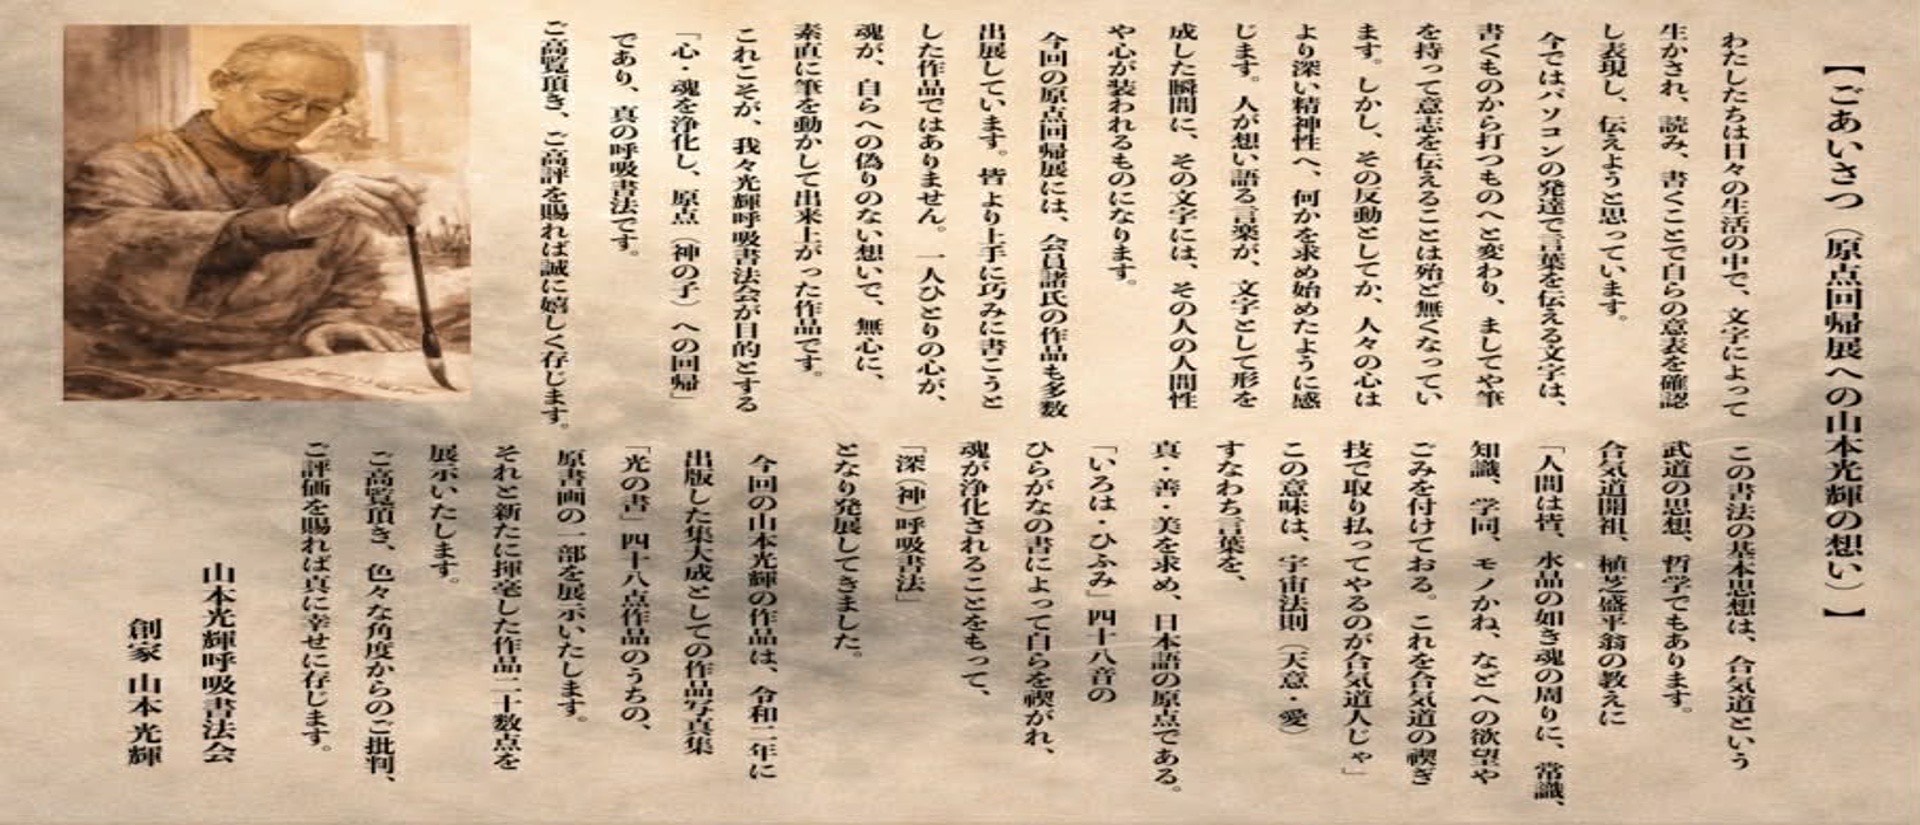 【ごあいさつ（原点回帰展への山本光輝の想い）】
わたしたちは日々の生活の中で、文字によって
生かされ、読み、書くことで自らの意表を確認
し表現し、伝えようと思っています。
今ではパソコンの発達で言葉を伝える文字は、
書くものから打つものへと変わり、ましてや筆
を持って意志を伝えることは殆ど無くなってい
ます。しかし、その反動としてか、人々の心は
より深い精神性へ、何かを求め始めたように感
じます。人が想い語る言楽が、文字として形を
成した瞬間に、その文字には、その人の人間性
や心が装われるものになります。
今回の原点回帰展には、会員諸氏の作品も多数
出展しています。皆より上手に巧みに書こうと
した作品ではありません。一人ひとりの心が、
魂が、自らへの偽りのない想いで、無心に、
素直に筆を動かして出来上がった作品です。
これこそが、我々光輝呼吸書法会が目的とする
「心・魂を浄化し、原点（神の子）への回帰」
であり、真の呼吸書法です。
ご高覧頂き、ご高評を賜れば誠に嬉しく存じます。
この書法の基本思想は、合気道という
武道の思想、哲学でもあります。
合気道開祖、植芝盛平翁の教えに
「人間は皆、水品の如き魂の周りに、常識、
知識、学同、モノかね、などへの欲望や
ごみを付けておる。これを合気道の禊ぎ
技で取り払ってやるのが合気道人じゃ」
この意味は、宇宙法則（天意・愛）
すなわち言葉を、
真・善・美を求め、日本語の原点である。
「いろは・ひふみ」四十八音の
ひらがなの書によって自らを禊がれ、
魂が浄化されることをもって、
「深（神）呼吸書法」
となり発展してきました。
今回の山本光輝の作品は、令和二年に
出版した集大成としての作品写真集
「光の書」四十八点作品のうちの、
原書画の一部を展示いたします。
それと新たに揮毫した作品二十数点を
展示いたします。
ご高覧頂き、色々な角度からのご批判、
ご評価を賜れば真に幸せに存じます。
山本光輝呼吸書法会
創家 山本光輝